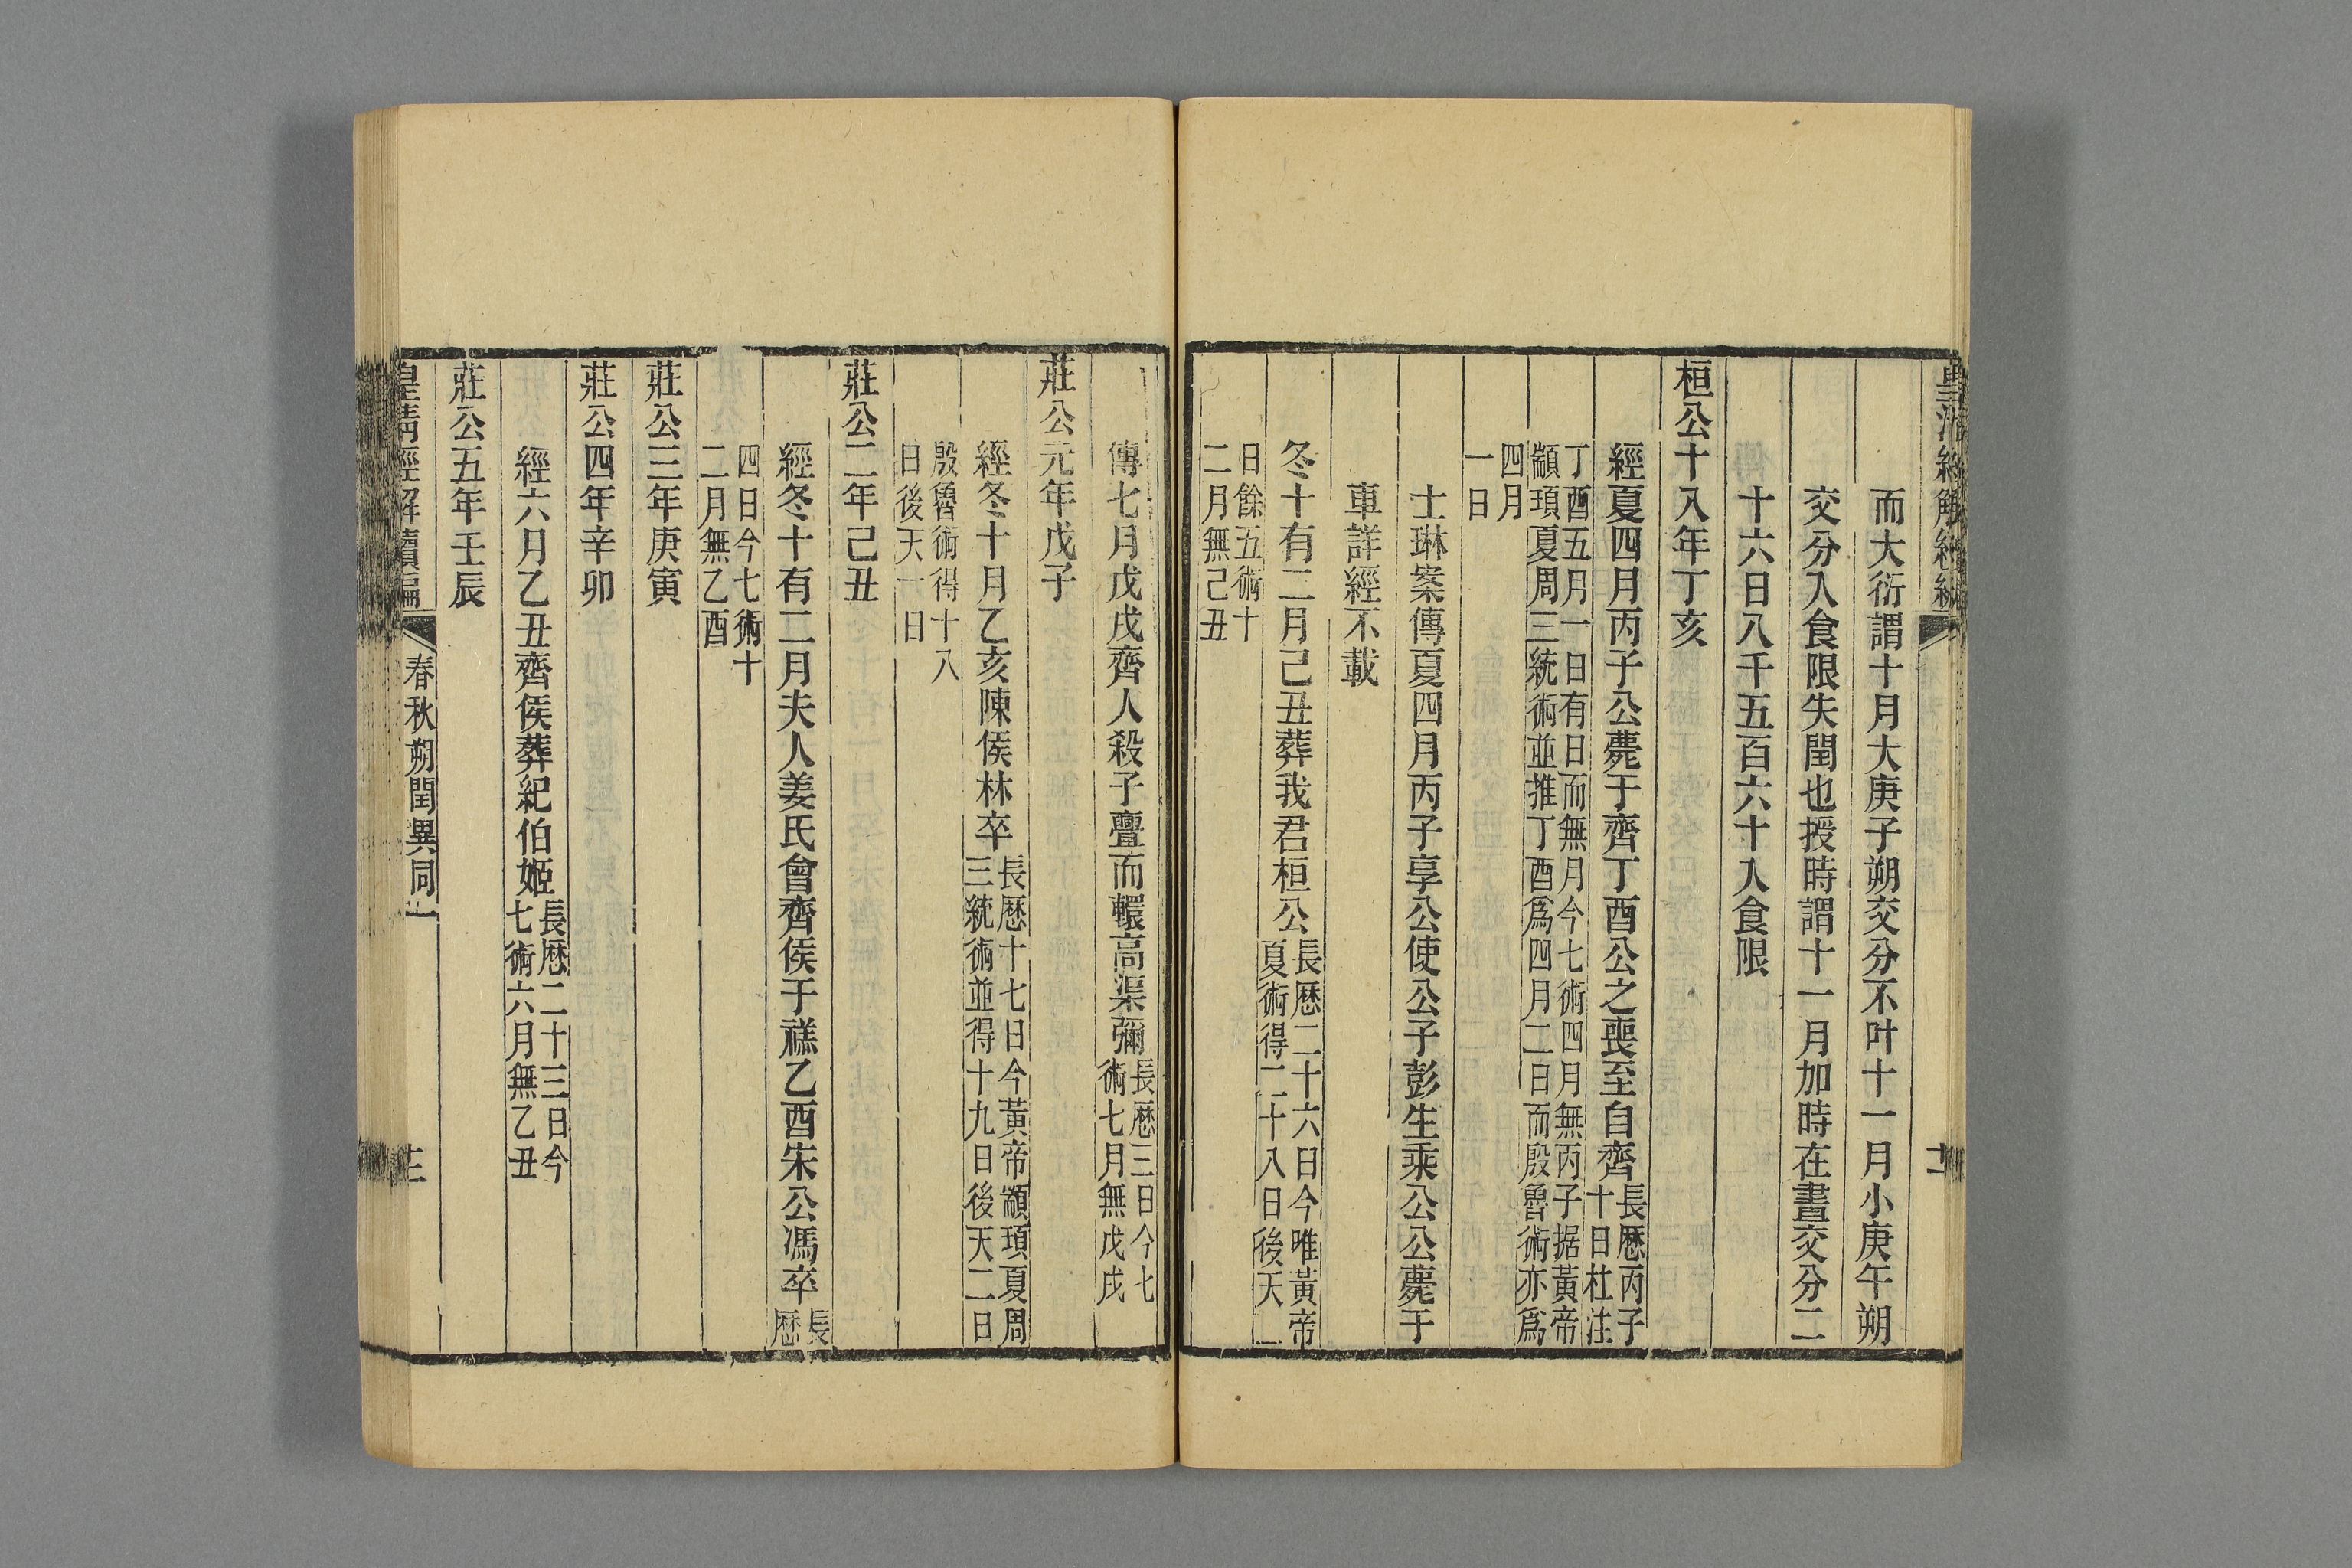 而大衍謂十月大庚子朔交分不叶十一月小庚午朔
交分入食限失閏也授時謂十一月加時在晝交分二
十六日八千五百六十入食限
桓公十八年丁亥
經夏四月丙子公薨于齊丁酉公之喪至自齊長歷丙子
十日杜注
丁酉五月一日有日而無月今七術四月無丙子据黃帝
顓頊夏周三統術並推丁酉爲四月二日而殷魯術亦爲
四月
一日
士琳案傳夏四月丙子享公使公子彭生乘公公薨于
車詳經不載
冬十有二月己丑葬我君桓公長歷二十六日今唯黃帝
夏術得二十八日後天一
日餘五術十
二月無己丑
傳七月戊戌齊人殺子亹而轘高渠彌長歷三日今七
術七月無戊戌
莊公元年戊子
經冬十月乙亥陳侯林卒長歷十七日今黃帝顓頊夏周
三統術並得十九日後天二日
殷魯術得十八
日後天一日
莊公二年己丑
經冬十有二月夫人姜氏會齊侯于禚乙酉宋公馮卒長
歷
四日今七術十
二月無乙酉
莊公三年庚寅
莊公四年辛卯
經六月乙丑齊侯葬紀伯姬長歷二十三日今
七術六月無乙丑
莊公五年壬辰
皇清經解續編
春秋朔閏異同一